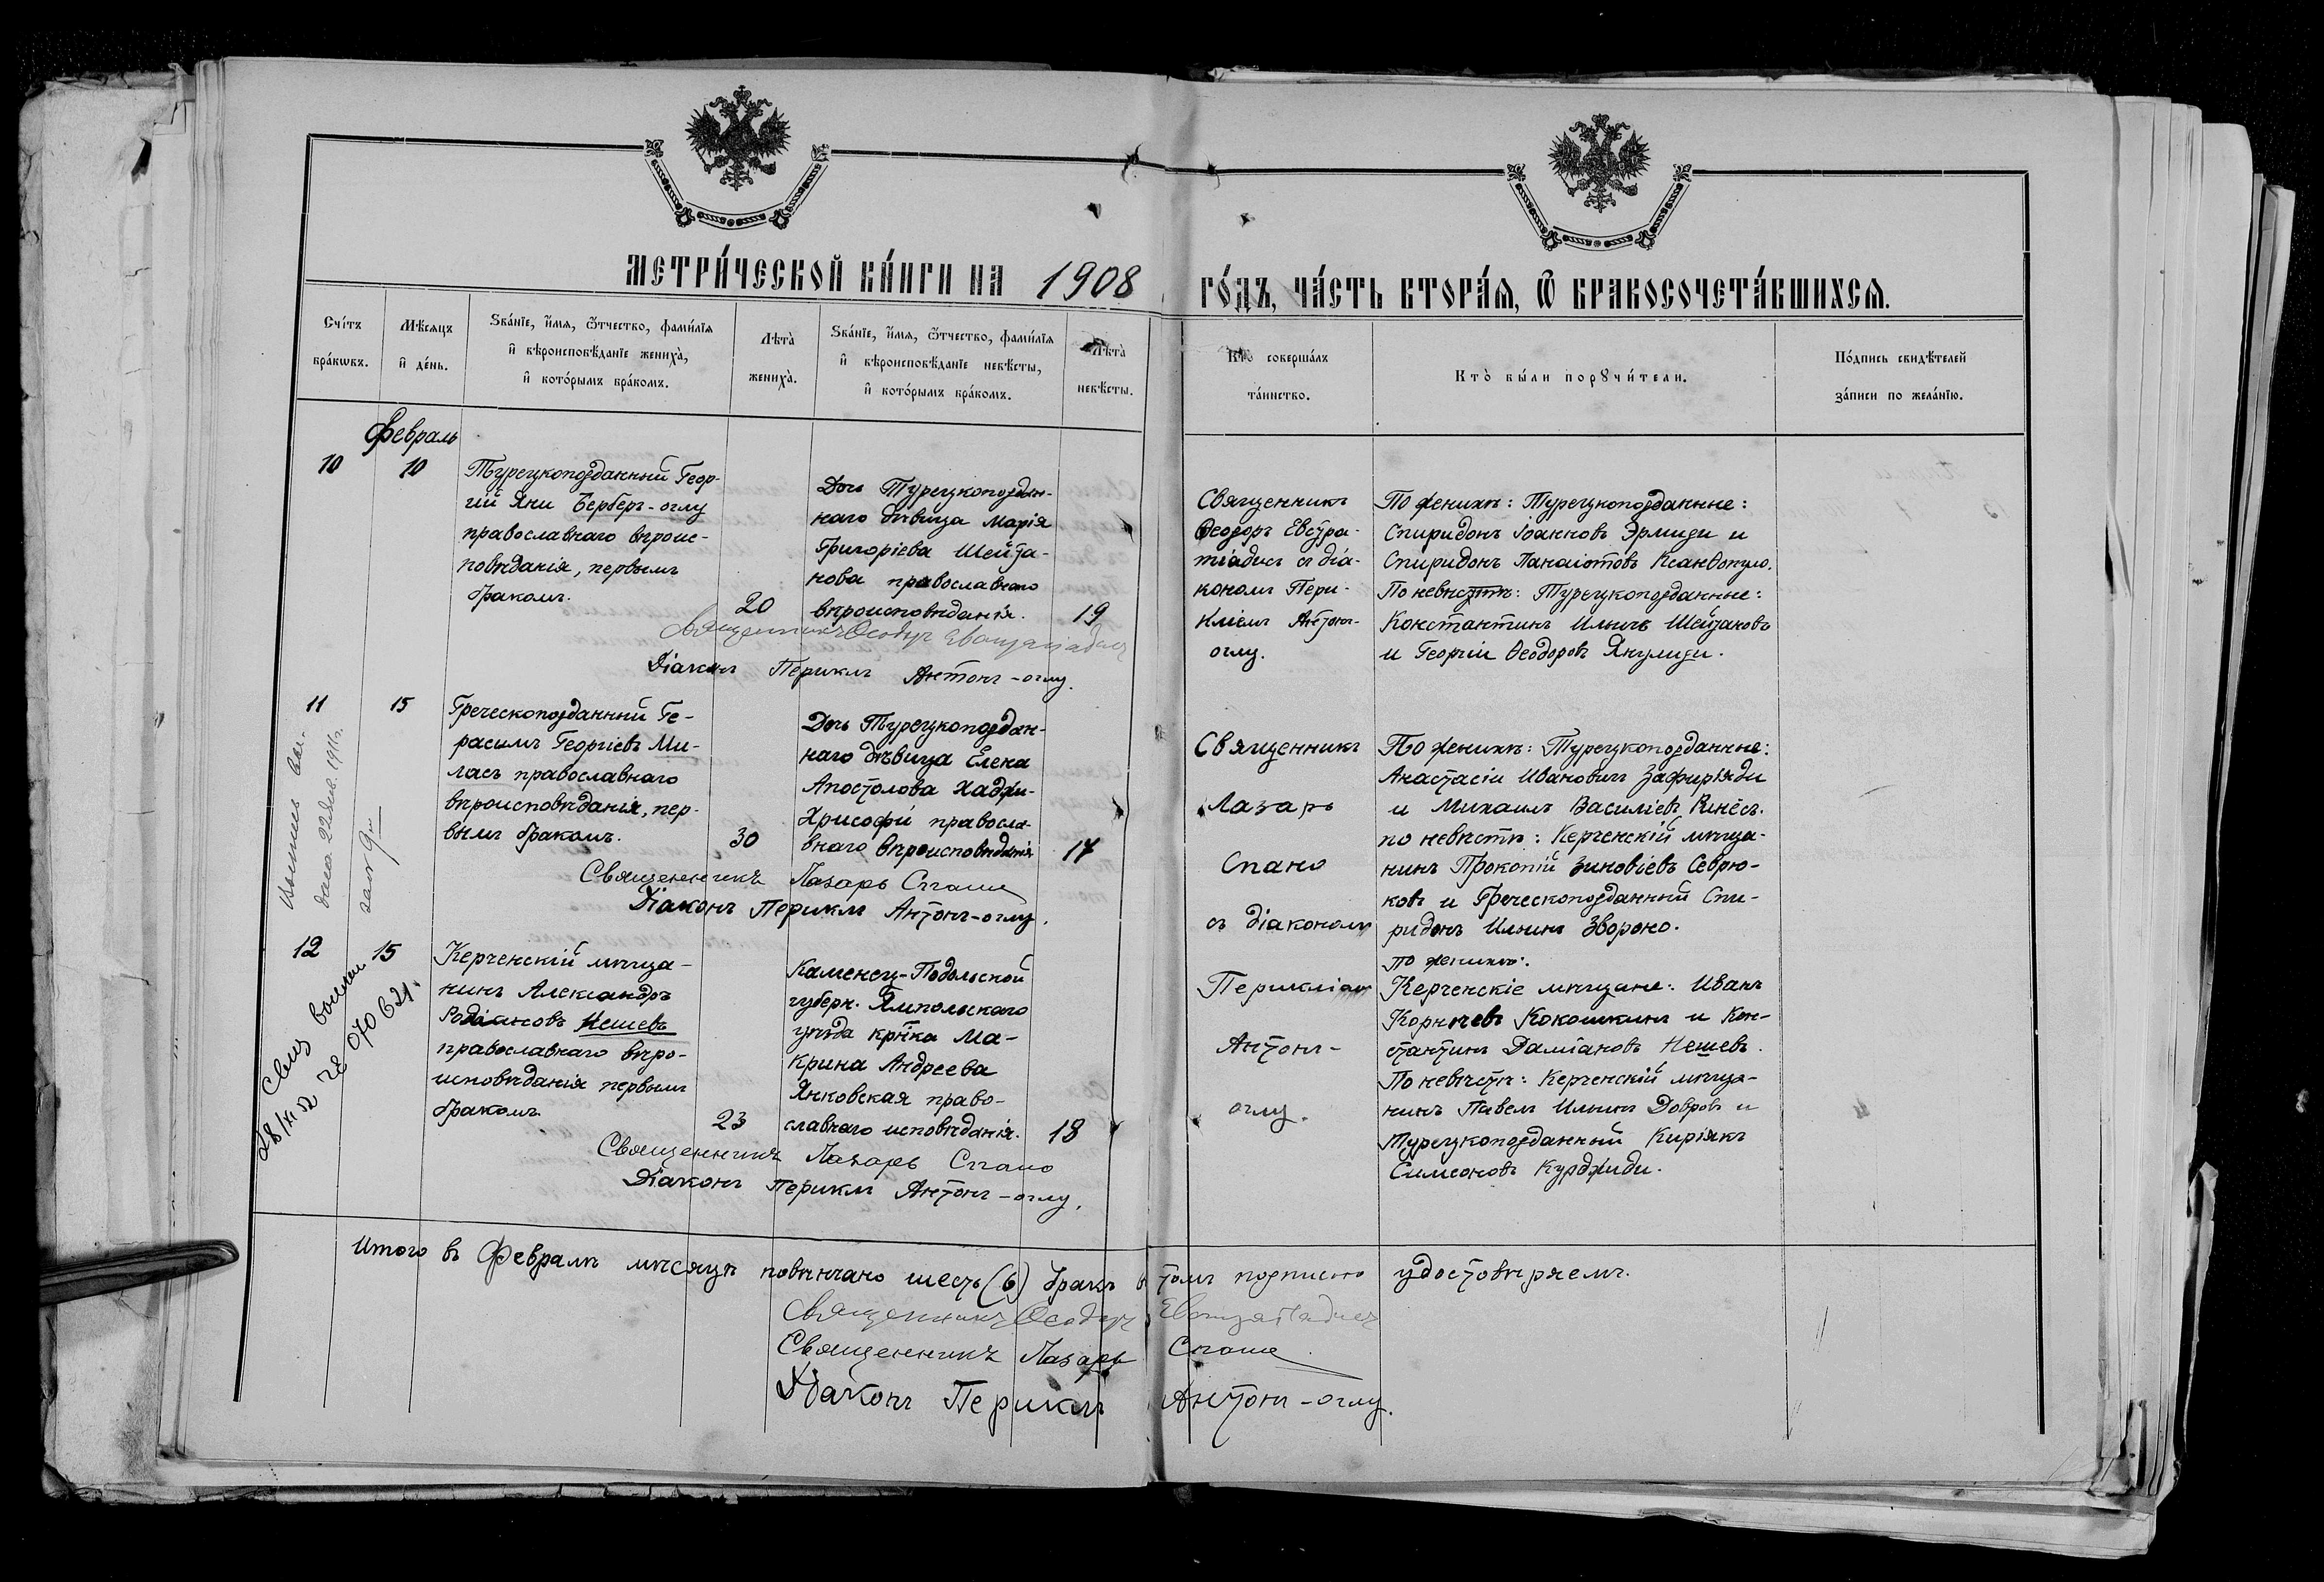 МЕТРИ́ЧЕСКОЙ КНИ́ГИ НА 1908 ГО́ДЪ, ЧА́СТЬ ВТОРА́Я, Ѡ БРАКОСОЧЕТА́ВШИХСЯ.
Сче́тъ бра́кωвъ.
Мѣ́сяцъ и де́нь.
Зва́нїе, и́мя, о́тчество, фами́лїя и вѣроисповѣ́данїе жениха̀, и кото́рымъ бра́комъ.
Лѣта̀ жениха̀.
Зва́нїе, и́мя, о́тчество, фами́лїя и вѣроисповѣ́данїе невѣ́сты, и кото́рымъ бра́комъ.
Лѣта̀ невѣ́сты.
Кто̀ соверша́лъ та́инство.
Кто̀ бы́ли порꙋчи́тели.
По́дпись свидѣ́телей за́писи по жела́нїю.
Февраль
10
10
Турецкоподданный Геор-
гій Яни Берберъ-оглу
православнаго вѣроис-
повѣданія, первымъ
бракомъ.
20
Дочь Турецкоподдан-
наго дѣвица Марія
Григоріева Шейта-
нова православнаго
вѣроисповѣданія.
19
Священникъ
Ѳеодоръ Евстра-
тіадисъ съ діа-
кономъ Пери-
кліемъ Антонъ-
оглу.
По женихѣ: Турецкоподданные:
Спиридонъ Іоанновъ Эрмиди и
Спиридонъ Панаіотовъ Ксандопуло.
По невѣстѣ: Турецкоподданные:
Константинъ Ильичъ Шейтановъ
и Георгій Ѳеодоровъ Янулиди.
Священникъ Ѳеодоръ Евстратіадисъ
Діаконъ Периклъ Антонъ-оглу.
11
15
Греческоподданный Ге-
расимъ Георгіевъ Ми-
ласъ православнаго
вѣроисповѣданія, пер-
вымъ бракомъ.
30
Дочь Турецкоподдан-
наго дѣвица Елена
Апостолова Хаджи-
Хрисофи правосла-
внаго вѣроисповѣданія
17
Священникъ
Лазарь
Спано
съ діакономъ
Перикліемъ
Антонъ-
оглу.
По женихѣ: Турецкоподданные:
Анастасій Ивановичъ Зафиріади
и Михаилъ Василіевъ Кинесъ.
по невѣстѣ: Керченскій мѣща-
нинъ Прокопій Зиновіевъ Севрю-
ковъ и Греческоподданный Спи-
ридонъ Ильинъ Звороно.
Священникъ Лазарь Спано
Діаконъ Периклъ Антонъ-оглу.
12
15
Керченскій мѣща-
нинъ Александръ
Родіоновъ Нешевъ
православнаго вѣро-
исповѣданія первымъ
бракомъ.
23
Каменец-Подольской
губерн. Ямпольскаго
уѣзда кр-ка Ма-
крина Андреева
Янковская право-
славнаго исповѣданія.
18
по женихѣ:
Керченскіе мѣщане: Иванъ
Корнѣевъ Кокошкинъ и Кон-
стантинъ Даміановъ Нешевъ.
По невѣстѣ: Керченскій мѣща-
нинъ Павелъ Ильинъ Добровъ и
Турецкоподданный Киріякъ
Симеоновъ Курджиди.
Священникъ Лазарь Спано
Діаконъ Периклъ Антонъ-оглу.
Итого въ Февралѣ мѣсяцѣ повѣнчано шесть (6) бракъ въ томъ подписью удостовѣряемъ.
Священникъ Ѳеодоръ Евстратіадисъ
Священникъ Лазарь Спано
Діаконъ Периклъ Антонъ-оглу.